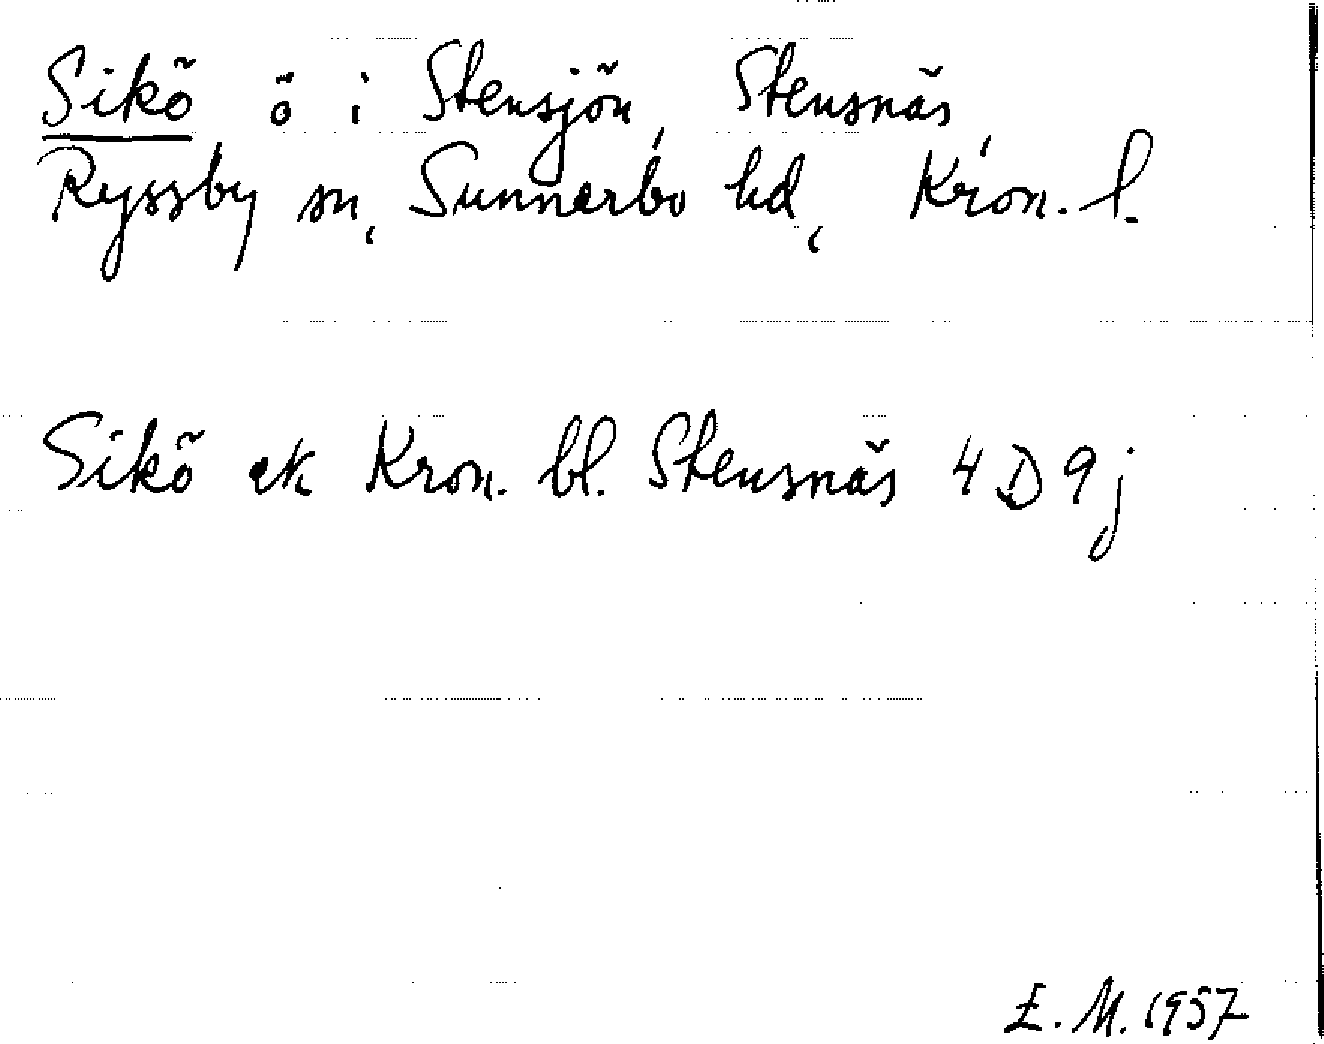 Sikö ö i Stensjön, Stensnäs,
Ryssby sn, Sunnerbo hd, Kron. l.
Sikö ek Kron. bl. Stensnäs 4D9j
E.M. 1957